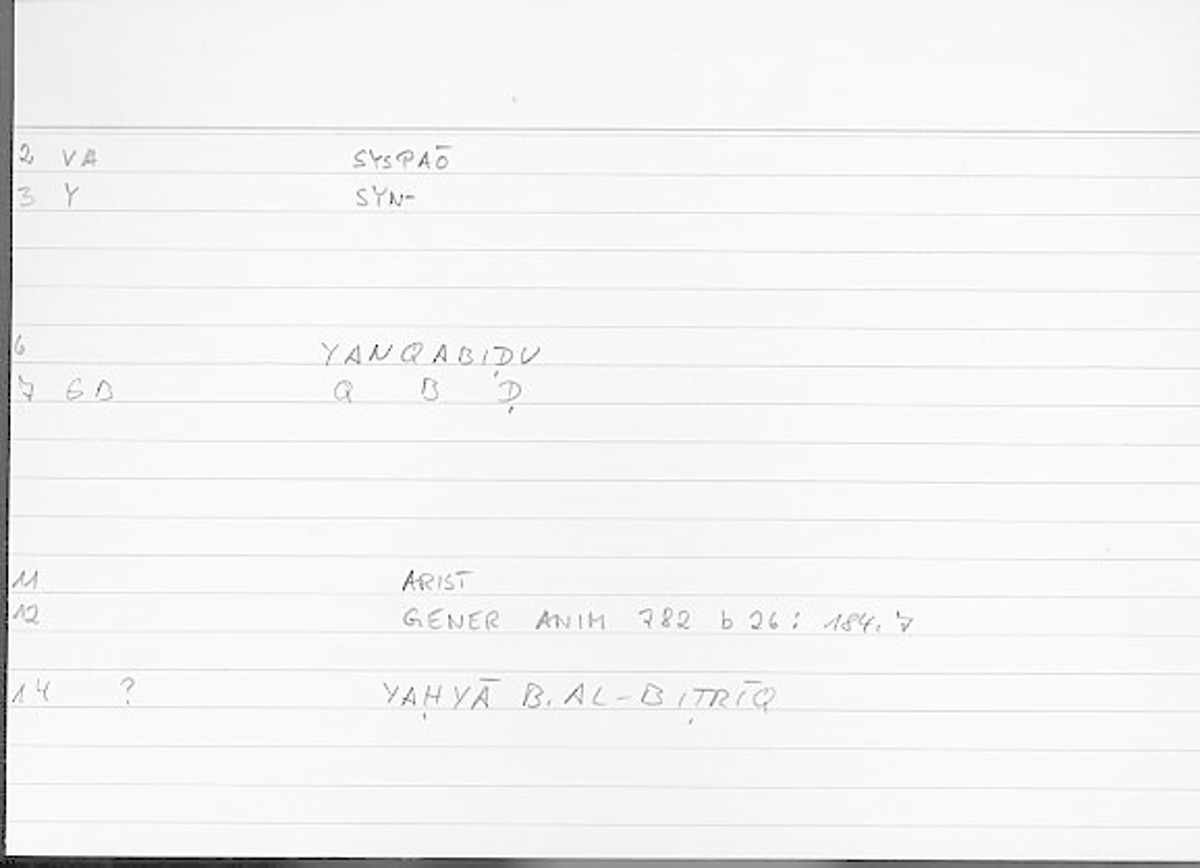 2 VA SYSPAŌ
3 Y SYN-
6 YANQABIḌU
7 GB Q B Ḍ
11 ARIST
12 GENER ANIM 782 b 26: 184.7
14 ? YAḤYĀ B. AL-BIṬRĪQ